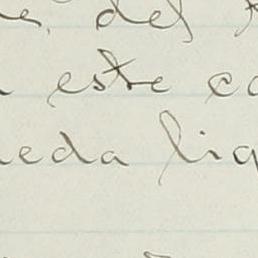 e del
este co
eda liq